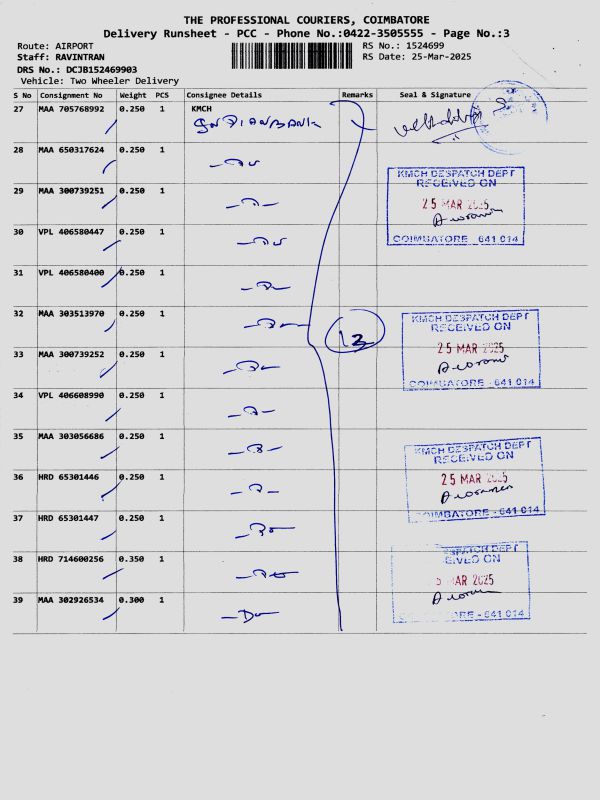 THE PROFESSIONAL COURIERS, COIMBATORE
Delivery Runsheet - PCC - Phone No.:0422-3505555 - Page No.:3
Route: AIRPORT
RS No.: 1524699
Staff: RAVINTRAN
RS Date: 25-Mar-2025
DRS No.: DCJB152469903
Vehicle: Two Wheeler Delivery
S No Consignment No Weight PCS Consignee Details Remarks Seal & Signature
27 MAA 705768992 0.250 1 KMCH
28 MAA 650317624 0.250 1
KMCH DESPATCH DEPT
RECEIVED ON
29 MAA 300739251 0.250 1
25 MAR 2025
30 VPL 406580447 0.250 1
COIMBATORE - 641 014
31 VPL 406580400 0.250 1
32 MAA 303513970 0.250 1
KMCH DESPATCH DEPT
RECEIVED ON
13
33 MAA 300739252 0.250 1
25 MAR 2025
COIMBATORE - 641 014
34 VPL 406608990 0.250 1
35 MAA 303056686 0.250 1
KMCH DESPATCH DEPT
RECEIVED ON
36 HRD 65301446 0.250 1
25 MAR 2025
COIMBATORE - 641 014
37 HRD 65301447 0.250 1
38 HRD 714600256 0.350 1
DESPATCH DEPT
EIVED ON
5 MAR 2025
39 MAA 302926534 0.300 1
ORE - 641 014